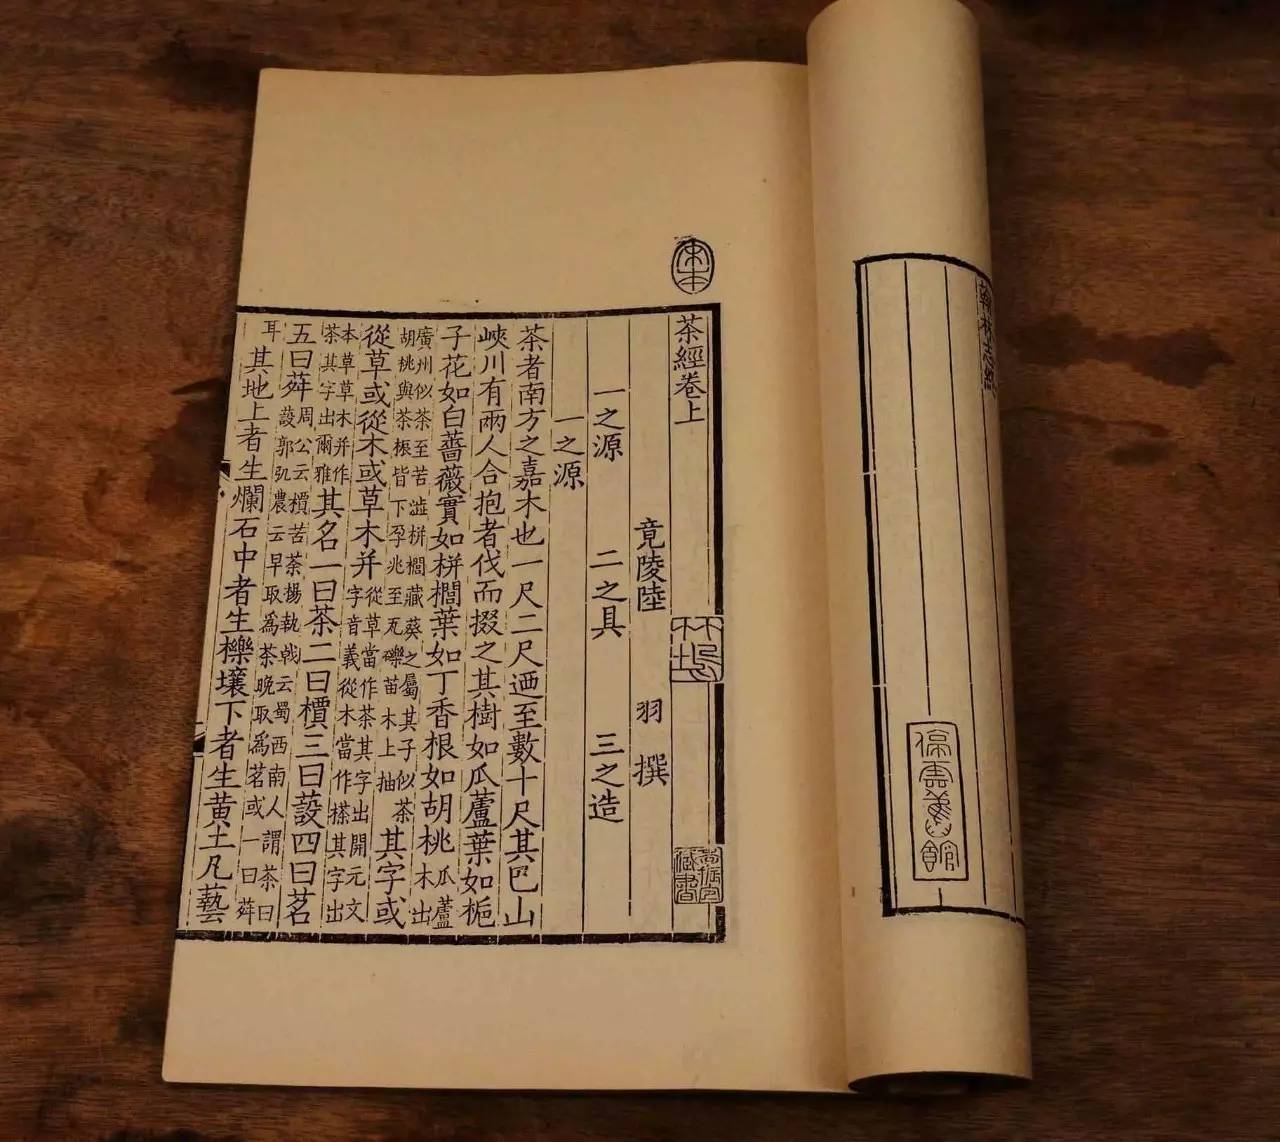 翰林志終
停雲舊館
宋本
茶經卷上
竹塢
竟陵陸 羽 撰
一之源 二之具 三之造
一之源
茶者南方之嘉木也一尺二尺迺至數十尺其巴山
峽川有兩人合抱者伐而掇之其樹如瓜蘆葉如梔
子花如白薔薇實如栟櫚葉如丁香根如胡桃瓜蘆木出
廣州似茶至苦澁栟櫚藏葵之屬其子似茶胡桃與茶根皆下孕兆至瓦礫苗木上抽其字或
從草或從木或草木并從草當作茶其字出開元文字音義從木當作搽其字出
本草草木并作茶其字出爾雅其名一曰茶二曰檟三曰蔎四曰茗
五曰荈周公云檟苦茶楊執戟云蜀西南人謂茶曰蔎郭弘農云早取爲茶晚取爲茗或一曰荈
耳其地上者生爛石中者生櫟壤下者生黃土凡藝